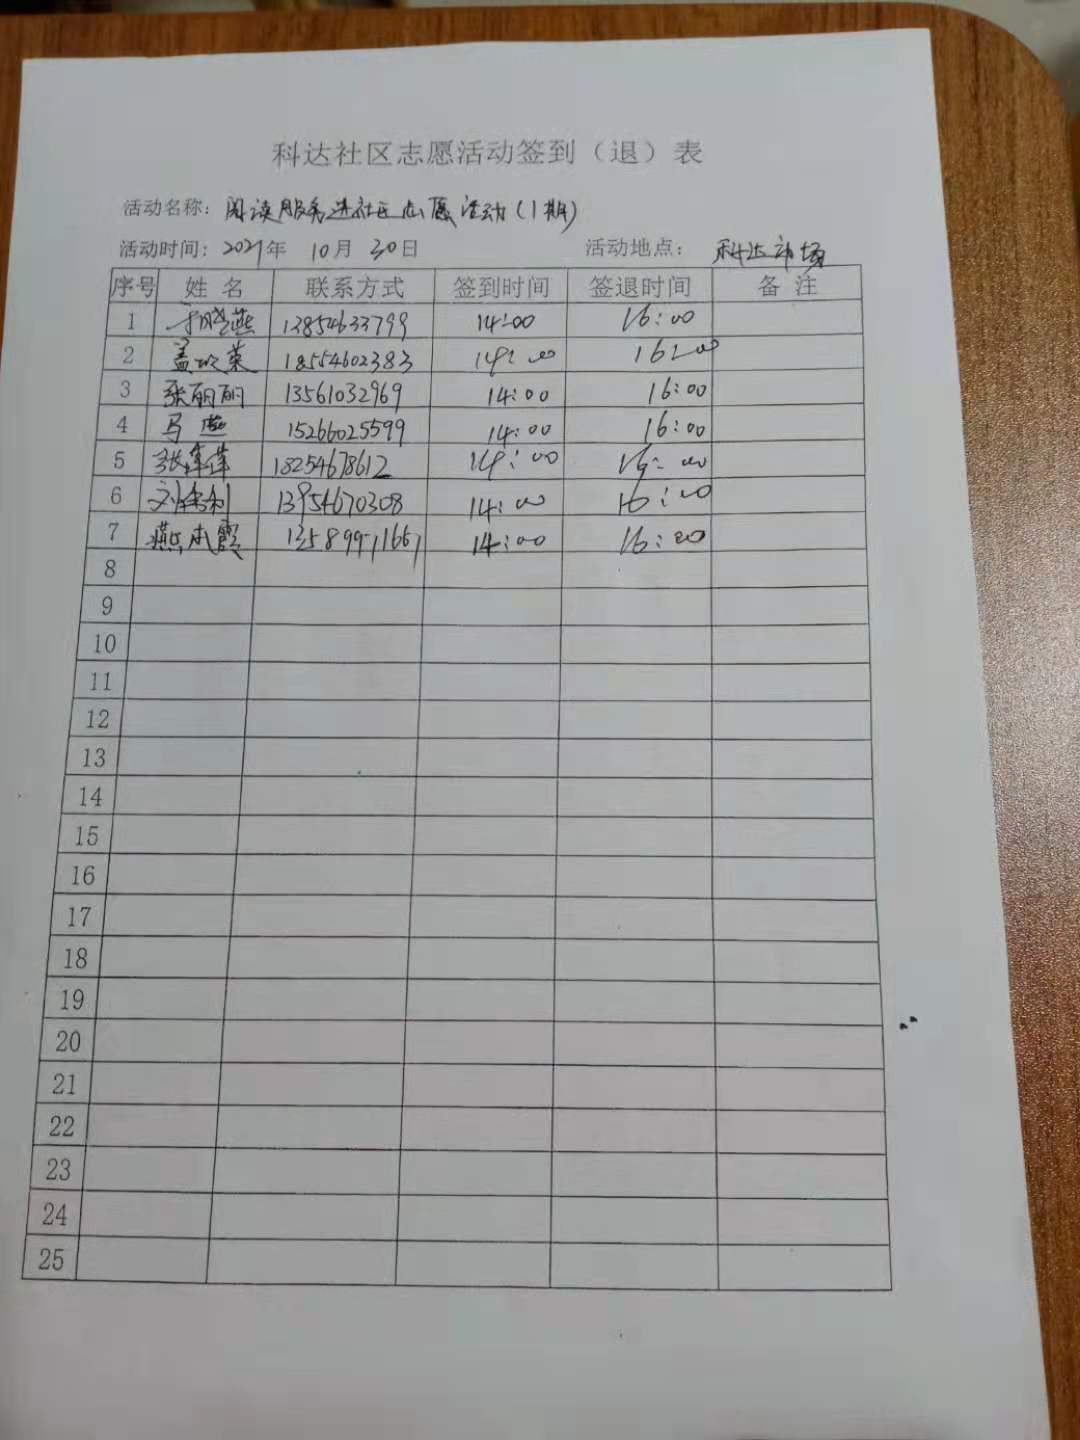 科达社区志愿活动签到（退）表
活动名称：阅读服务进社区志愿活动（1期）
活动时间：2021年 10月 30日 活动地点：科达市场
序号 姓 名 联系方式 签到时间 签退时间 备 注
1 于晓燕 13854633799 14:00 16:00
2 盖 荣 18554602383 14:00 16:00
3 张丽丽 13561032969 14:00 16:00
4 马燕 15266025599 14:00 16:00
5 张萍萍 18254678612 14:00 16:00
6 刘 利 13954670308 14:00 16:00
7 燕 霞 14:00 16:00
8
9
10
11
12
13
14
15
16
17
18
19
20
21
22
23
24
25